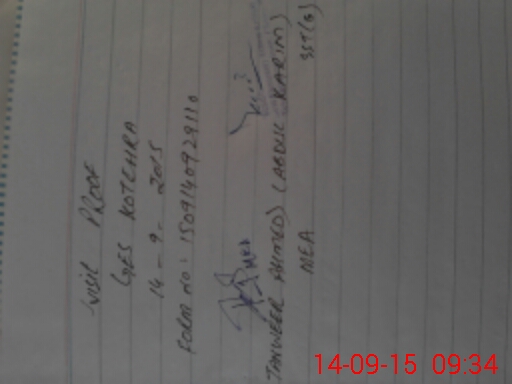 VISIT PROOF
GES KOTEHRA
14-9-2015
FORM NO: 1509140929110
MEA
(TANVEER AHMED) (ABDUL KARIM)
MEA SST(G)
14-09-15 09:34